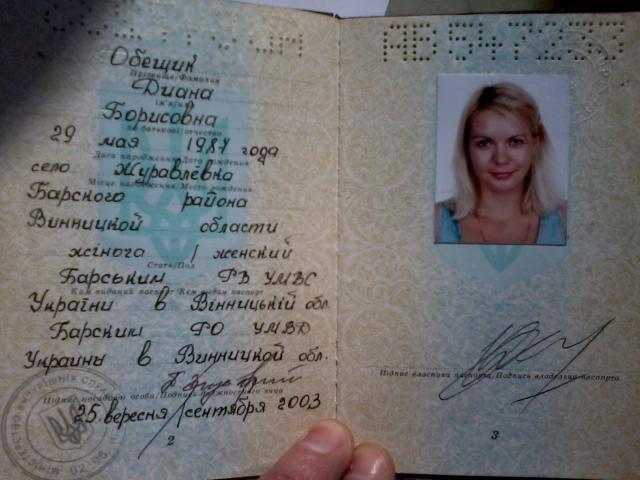 Обещик
Прізвище/Фамилия
Диана
ім'я/имя
Борисовна
по батькові/отчество
29 мая 1987 года
Дата народження/Дата рождения
село Журавлёвка
Місце народження/Место рождения
Барского района
Винницкой области
жіноча / женский
Стать/Пол
Барським РВ УМВС
Ким виданий паспорт/Кем выдан паспорт
України в Вінницькій обл.
Барским РО УМВД
Украины в Винницкой обл.
Підпис посадової особи/Подпись должностного лица
25 вересня / сентября 2003
2
АВ
Підпис власника паспорта/Подпись владельца паспорта
3